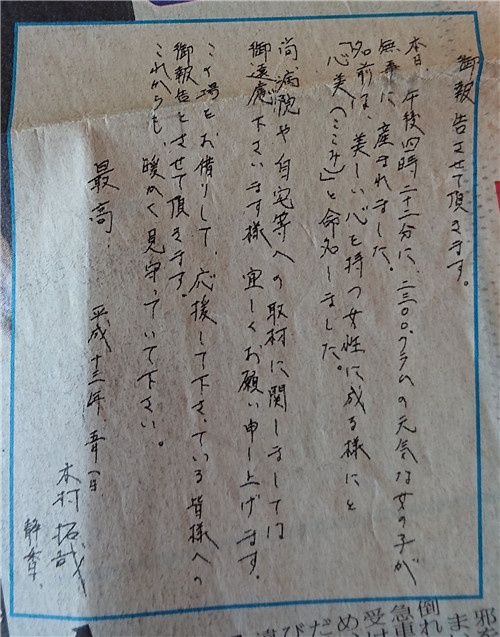 御報告させて頂きます。
本日、午後四時二十二分に、二三〇〇グラムの元気な女の子が
無事に、産まれました。
名前は、美しい心を持つ女性に成る様にと
「心美(ここみ)」と命名しました。
尚、病院や自宅等への取材に関しましては
御遠慮下さいます様、宜しくお願い申し上げます。
この場をお借りして、応援して下さっている皆様への
御報告とさせて頂きます。
これからも、暖かく見守っていて下さい。
最高. 平成十三年、五月一日
木村拓哉
静香.
邪
ま、
倒れ
急車
受け
め、
だ
び